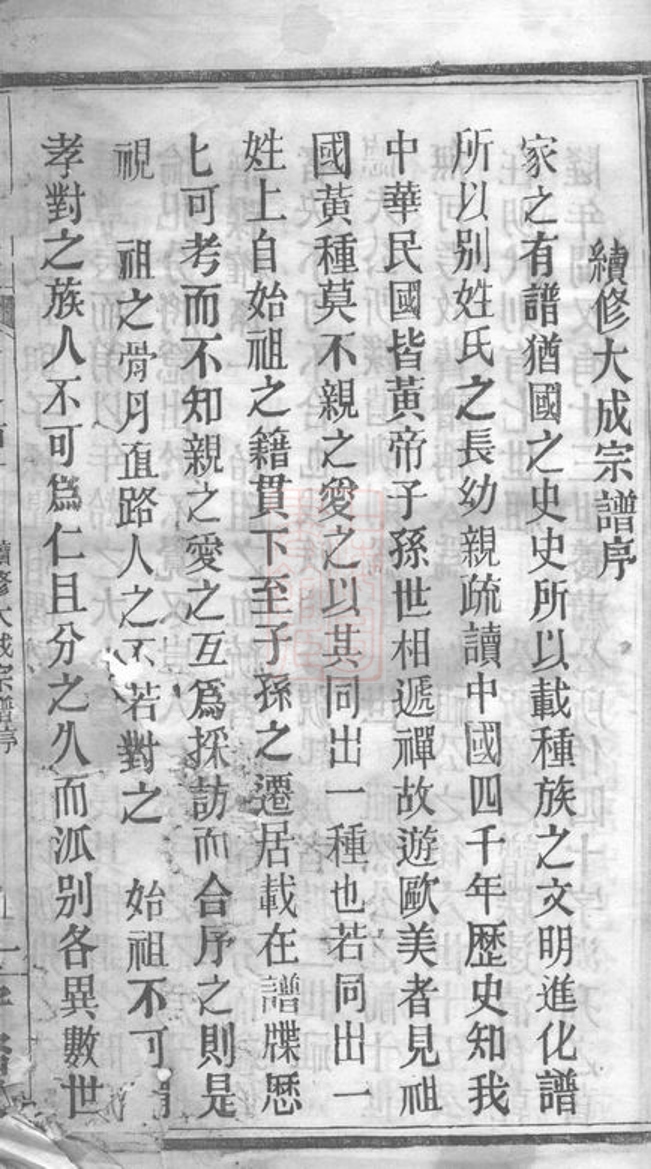 續修大成宗譜序
家之有譜猶國之史史所以載種族之文明進化譜
所以別姓氏之長幼親疏讀中國四千年歷史知我
中華民國皆黃帝子孫世相遞禪故遊歐美者見祖
國黃種莫不親之愛之以其同出一種也若同出一
姓上自始祖之籍貫下至子孫之遷居載在譜牒歷
匕可考而不知親之愛之互爲採訪而合序之則是
視 祖之骨月直路人之不若對之 始祖不可謂
孝對之族人不可爲仁且分之久而派別各異數世
續修大成宗譜序